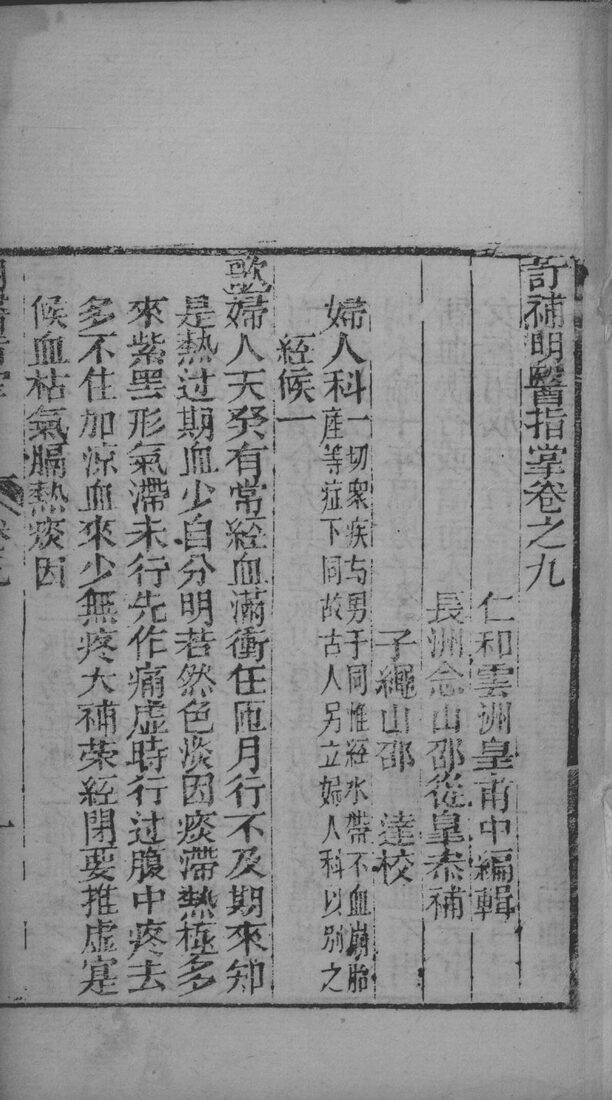 訂補明醫指掌卷之九
仁和雲洲皇甫中編輯
長洲念山邵從皇参補
子繩山邵 達校
婦人科一切衆疾与男子同惟經水帶下血崩胎
産等症不同故古人另立婦人科以別之
經候一
歌婦人天癸有常經血滿衝任匝月行不及期來知
是熱过期血少自分明若然色淡因痰滯熱極多
來紫黑形氣滯未行先作痛虛時行过腹中疼去
多不住加涼血來少無疼大補荣經閉要推虛寔
候血枯氣膈熱痰因
明醫指掌
卷之九
一